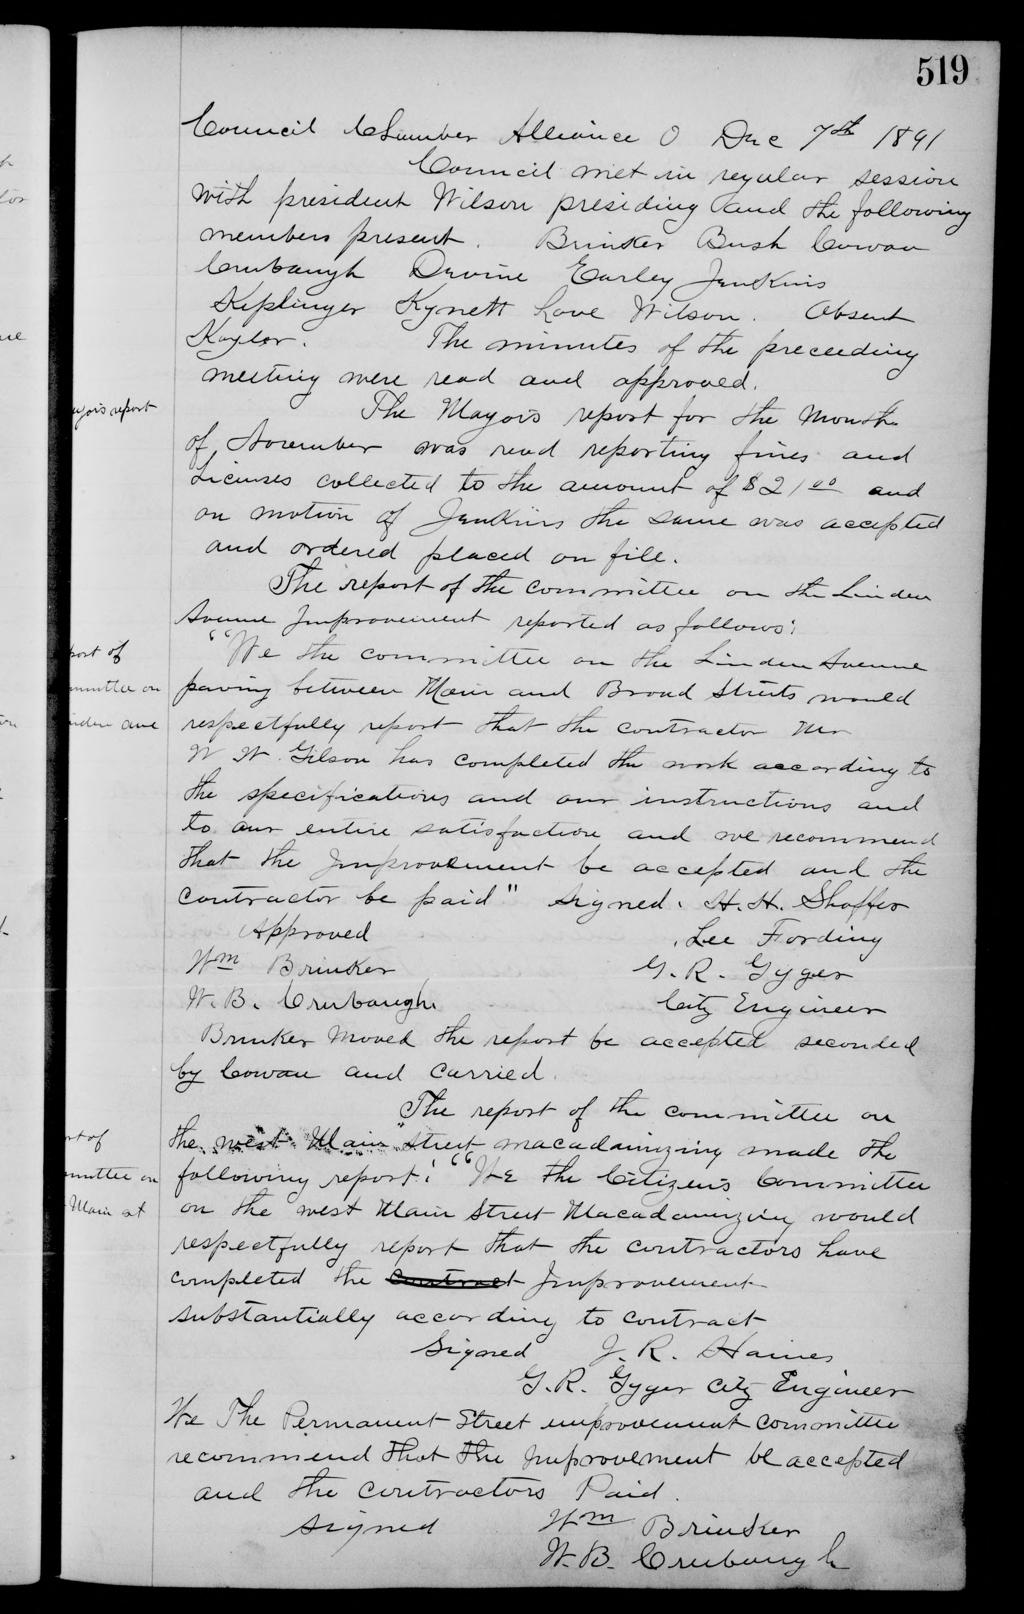 519
Council Chamber Alliance O Dec 7th 1891
Council met in regular session
with president Wilson presiding and the following
members present. Brinker Bush Cowan
Crubaugh Devine Earley Jenkins
Keplinger Kynett Love Wilson. Absent
Kaylor. The minutes of the preceeding
meeting were read and approved.
The Mayors report for the Month
of November was read reporting fines and
Licenses collected to the amount of $21 00 and
on motion of Jenkins the same was accepted
and ordered placed on file.
The report of the committee on the Linden
Avenue Improvement reported as follows:
"We the committee on the Linden Avenue
paving between Main and Broad Streets would
respectfully report that the contractor Mr
W W Gilson has completed the work according to
the specifications and our instructions and
to our entire satisfaction and we recommend
that the Improvement be accepted and the
contractor be paid" Signed. H. H. Shaffer
Approved Lee Fording
Wm Brinker G. R. Gyger
W. B. Crubaugh City Engineer
Brinker moved the report be accepted seconded
by Cowan and carried.
The report of the committee on
the west Main street macadamizing made the
following report: "We the Citizens Committee
on the west Main Street Macadamizing would
respectfully report that the contractors have
completed the contract Improvement
substantially according to contract
Signed J. R. Haines
G. R. Gyger City Engineer
We The Permanent Street improvement committee
recommend that the improvement be accepted
and the contractors Paid.
signed Wm Brinker
W. B. Crubaugh
ayors report
port of
mmittee on
inden ave
rt of
mmittee on
Main st